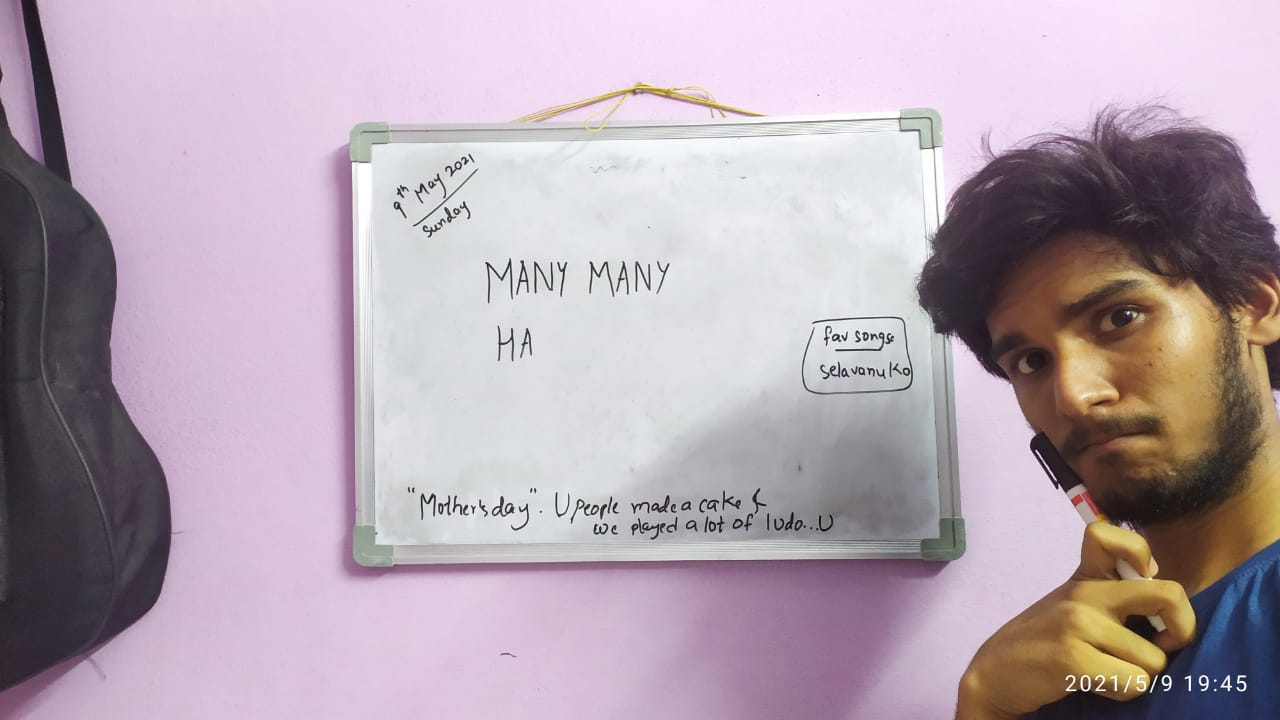 9th May 2021
Sunday
MANY MANY
HA
fav songs
selavanuko
"Mother's day". U people made a cake &
we played a lot of ludo...U
2021/5/9 19:45